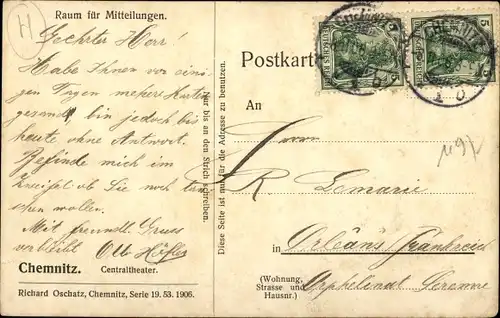 Raum für Mitteilungen.
H
Geehrter Herr!
Habe Ihnen vor eini-
gen Tagen mehere Karten
gesandt bin jedoch bis
heute ohne Antwort.
Befinde mich im
Zweifel ob Sie noch tau-
schen wollen.
Mit freundl. Gruss
verbleibt Otto
Chemnitz. Centraltheater.
Richard Oschatz, Chemnitz, Serie 19. 53. 1906.
Nur bis an den Strich schreiben.
Diese Seite ist nur für die Adresse zu benutzen.
Postkarte
DEUTSCHES REICH
5
CHEMNITZ
5
An
Herrn
R. Lemarie
in Orléans Frankreich
(Wohnung,
Strasse und
Hausnr.)
Orphelinat Serenne